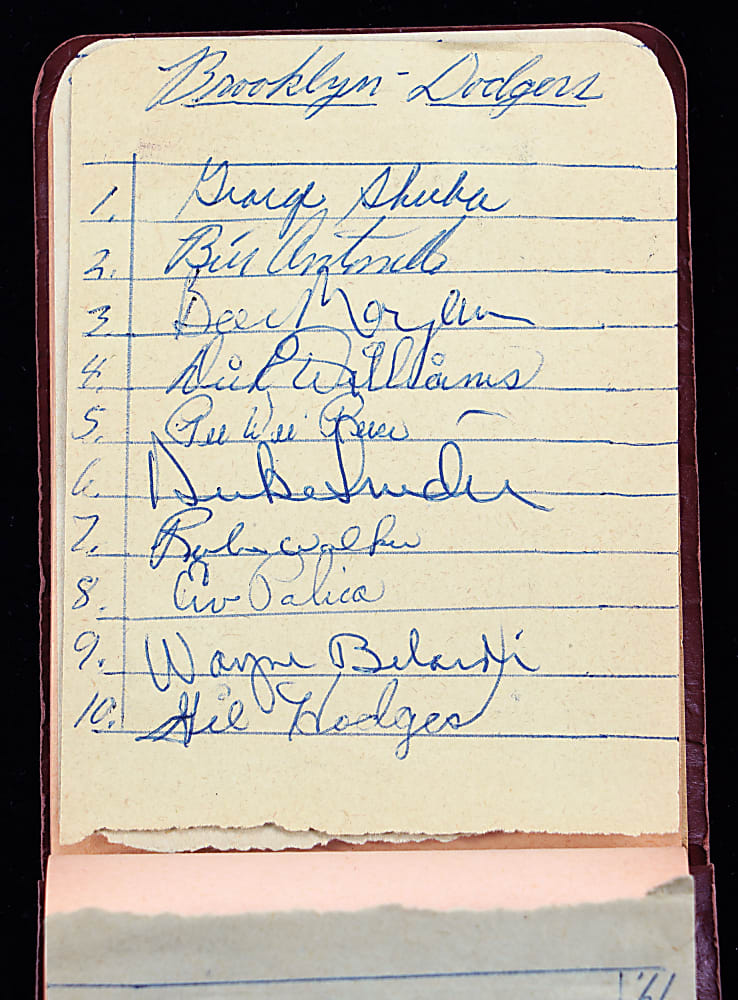 Brooklyn - Dodgers
1. George Shuba
2. Bill Antonello
3. Bobby Morgan
4. Dick Williams
5. Pee Wee Reese
6. Duke Snider
7. Rube Walker
8. Erv Palica
9. Wayne Belardi
10. Gil Hodges